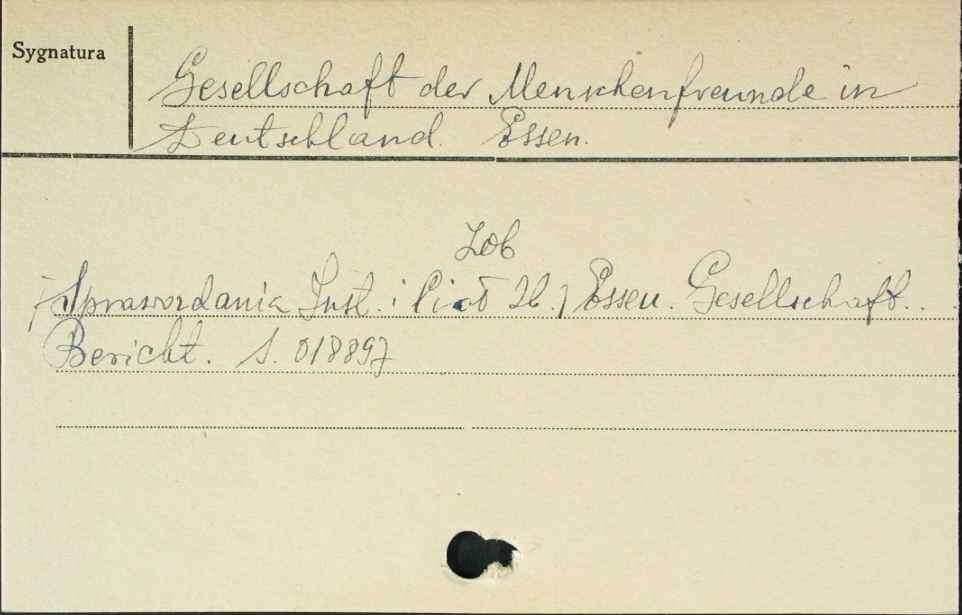 Sygnatura
Gesellschaft der Menschenfreunde in
Deutschland. Essen.
Zob
/Sprawozdania Inst. i 26./ Essen. Gesellschaft..
Bericht. S. 018897